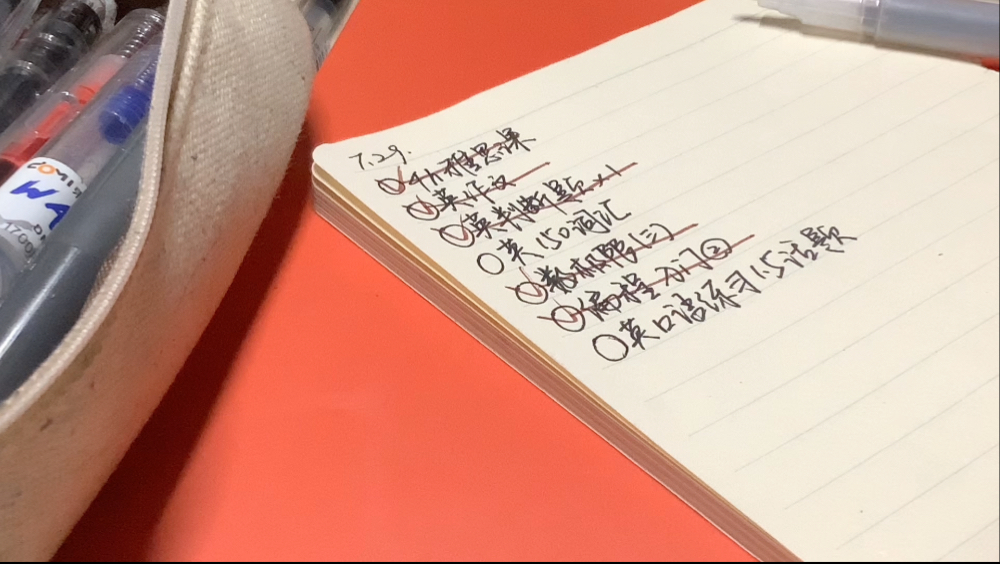 7.29.
4h雅思课
英作文
英判断题×1
英150词汇
数极限(三)
编程入门②
英口语练习1.5话题
COMI
WA
1700